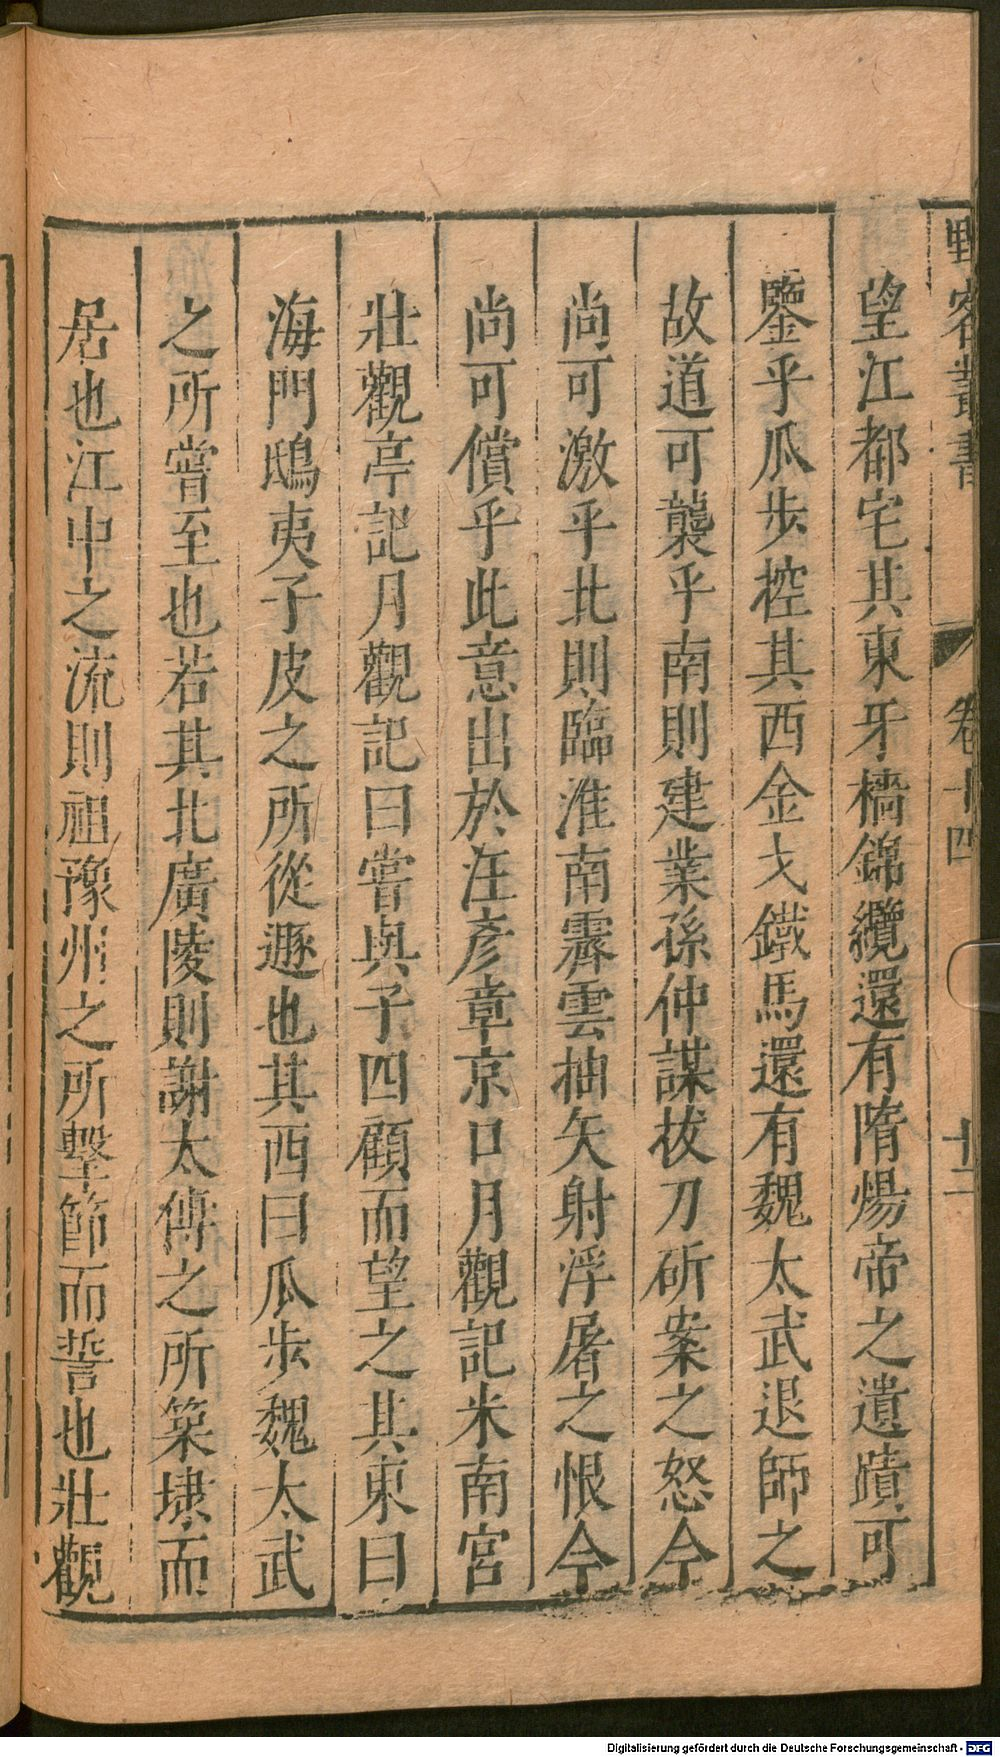 野客叢書 卷十四 十二
望江都宅其東牙檣錦纜還有隋煬帝之遺蹟可
鑒乎瓜步控其西金戈鐵馬還有魏太武退師之
故道可襲乎南則建業孫仲謀拔刀斫案之怒今
尚可激乎北則臨淮南霽雲抽矢射浮屠之恨今
尚可償乎此意出於汪彥章京口月觀記米南宮
壯觀亭記月觀記曰嘗與子四顧而望之其東曰
海門鴟夷子皮之所從遯也其西曰瓜步魏太武
之所嘗至也若其北廣陵則謝太傅之所築埭而
居也江中之流則祖豫州之所擊節而誓也壯觀
Digitalisierung gefördert durch die Deutsche Forschungsgemeinschaft - DFG